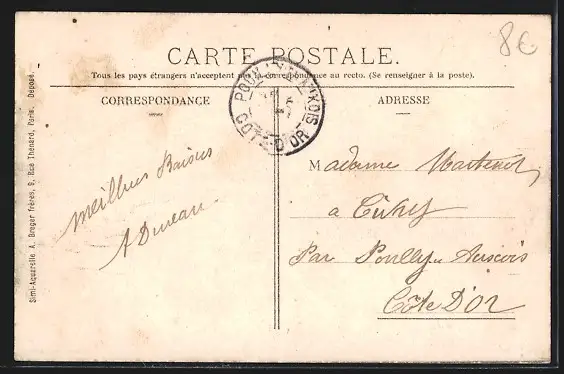 8€
CARTE POSTALE.
Tous les pays étrangers n'acceptent pas la correspondance au recto. (Se renseigner à la poste).
CORRESPONDANCE
ADRESSE
POUILLY-EN-AUXOIS
COTE-D'OR
Meilleurs Baisers
Madame
à
Par Pouilly en Auxois
Côte D'Or
Simi-Aquarelle A. Breger frères, 9, Rue Thénard, Paris. Déposé.